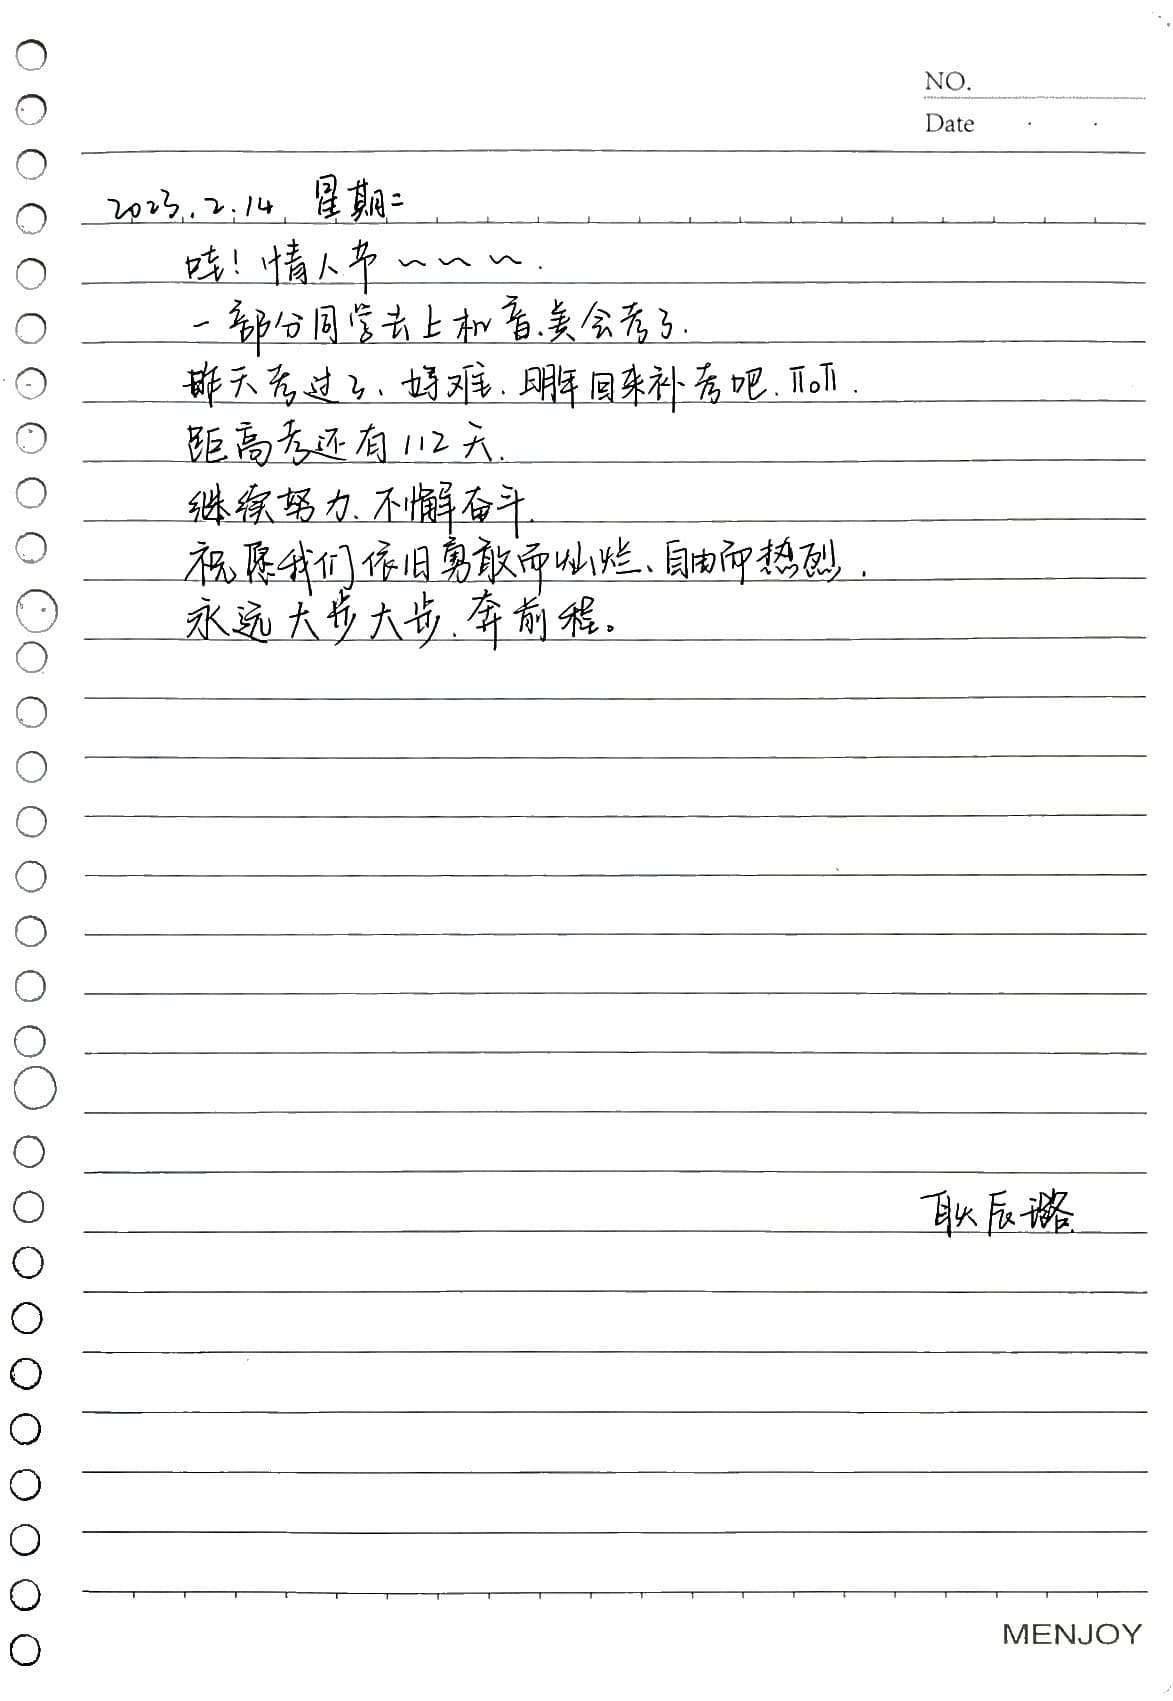 NO.
Date . .
2023.2.14 星期二
哇！情人节～～～.
一部分同学去上机音.美会考了.
昨天考过了、好难.明年回来补考吧.ㄒoㄒ.
距高考还有112天.
继续努力.不懈奋斗.
祝愿我们依旧勇敢而灿烂、自由而热烈.
永远大步大步.奔前程。
耿辰璐
MENJOY